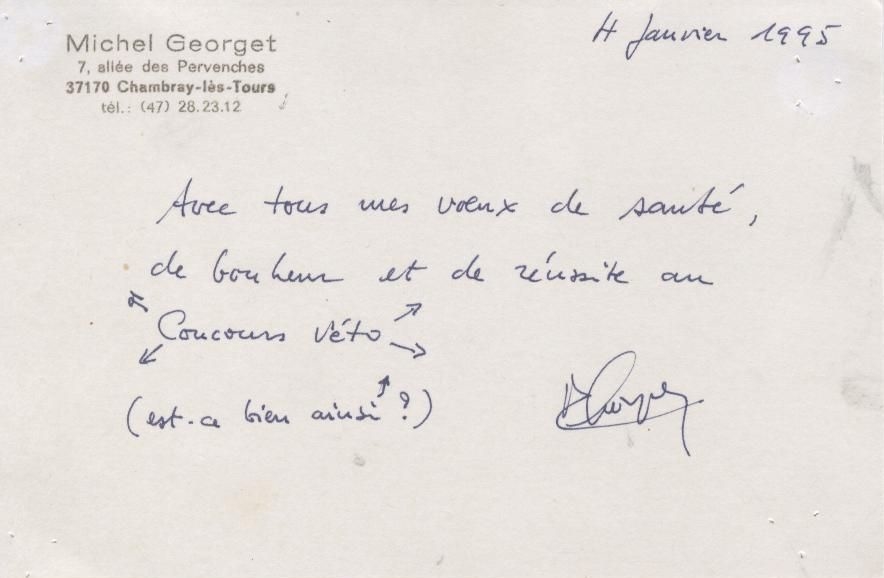 Michel Georget
7, allée des Pervenches
37170 Chambray-lès-Tours
tél.: (47) 28.23.12
4 Janvier 1995
Avec tous mes vœux de santé,
de bonheur et de réussite au
Concours Véto
(est-ce bien ainsi ?)